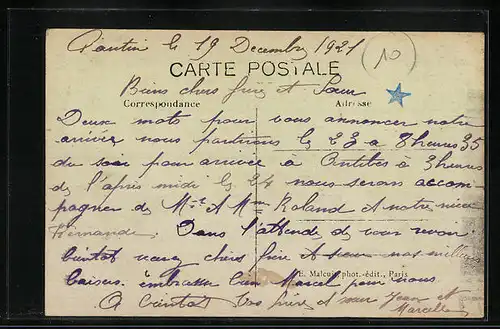 Pantin le 19 Decembre 1921
10
CARTE POSTALE
Biens chers frère et Sœur
Correspondance
Adresse
Deux mots pour vous annoncer notre
arrivée nous partirons le 23 a 8 heures 35
du soir pour arrivee à Antibes à 3 heures
de l'apres midi le 24 nous serons accom-
pagner de Mr et Mme Roland et notre niece
Fernande. Dans l'attende de vous revoir
bientot recevez chers frère et sœur nos meilleurs
E. Malcuit phot.-édit., Paris
baisers. embrasse bien Marcel pour nous
A bientot Vos frère et sœur Jean et
Marcelle